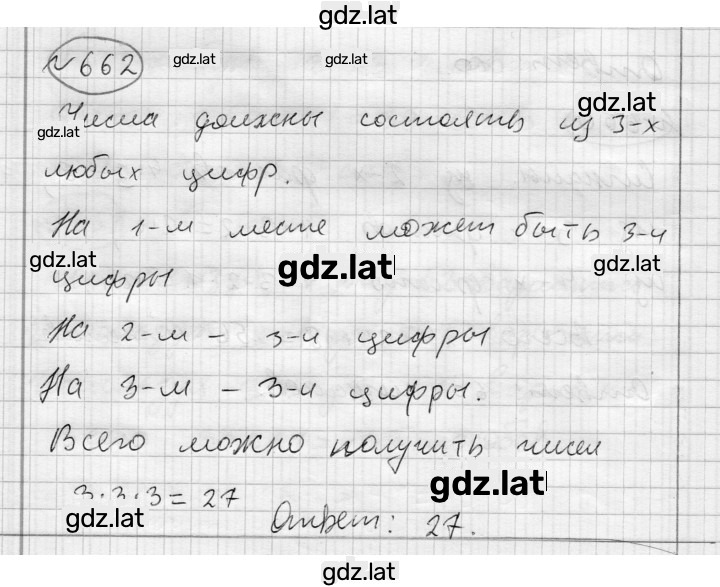 gdz.lat
№662 gdz.lat gdz.lat
gdz.lat
Числа должны состоять из 3-х
gdz.lat
любых цифр.
На 1-м месте может быть 3-и
gdz.lat gdz.lat gdz.lat
цифры
На 2-м – 3-и цифры
На 3-м – 3-и цифры.
Всего можно получить чисел
3·3·3=27 gdz.lat
gdz.lat Ответ: 27.
gdz.lat